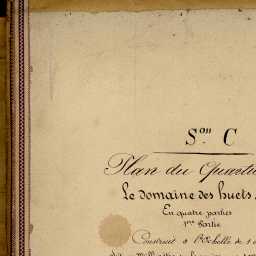 S.on C
Plan du Quartie
Le domaine des huets
En quatre parties
1ere Partie
Construit à l'Echelle de 1 à